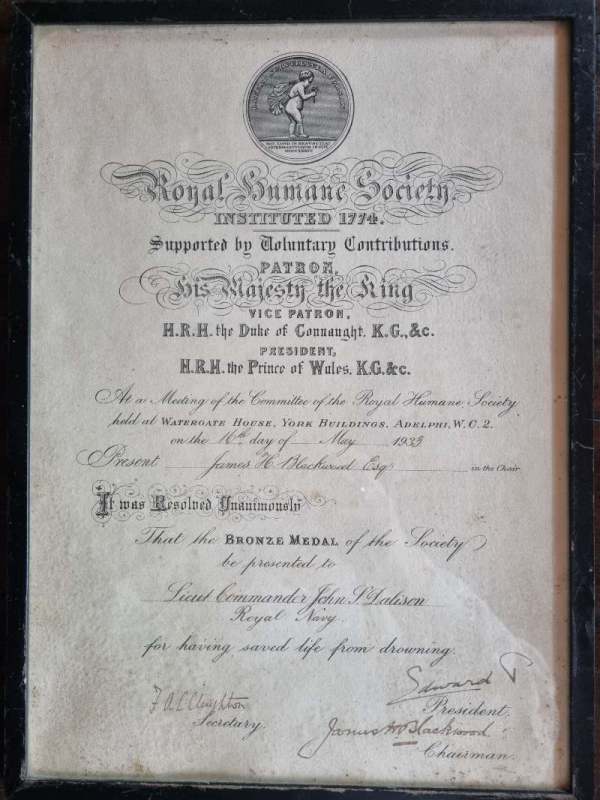 Royal Humane Society.
INSTITUTED 1774.
Supported by Voluntary Contributions.
PATRON,
His Majesty the King
VICE PATRON,
H.R.H. the Duke of Connaught, K.G., &c.
PRESIDENT,
H.R.H. the Prince of Wales, K.G. &c.
At a Meeting of the Committee of the Royal Humane Society
held at WATERGATE HOUSE, YORK BUILDINGS, ADELPHI, W.C.2.
on the 16th day of May 1933
Present James H. Blackwood Esq in the Chair
It was Resolved Unanimously
That the BRONZE MEDAL of the Society
be presented to
Lieut Commander John S. Dalison
Royal Navy
for having saved life from drowning.
Edward P
President.
Secretary.
Blackwood
Chairman.